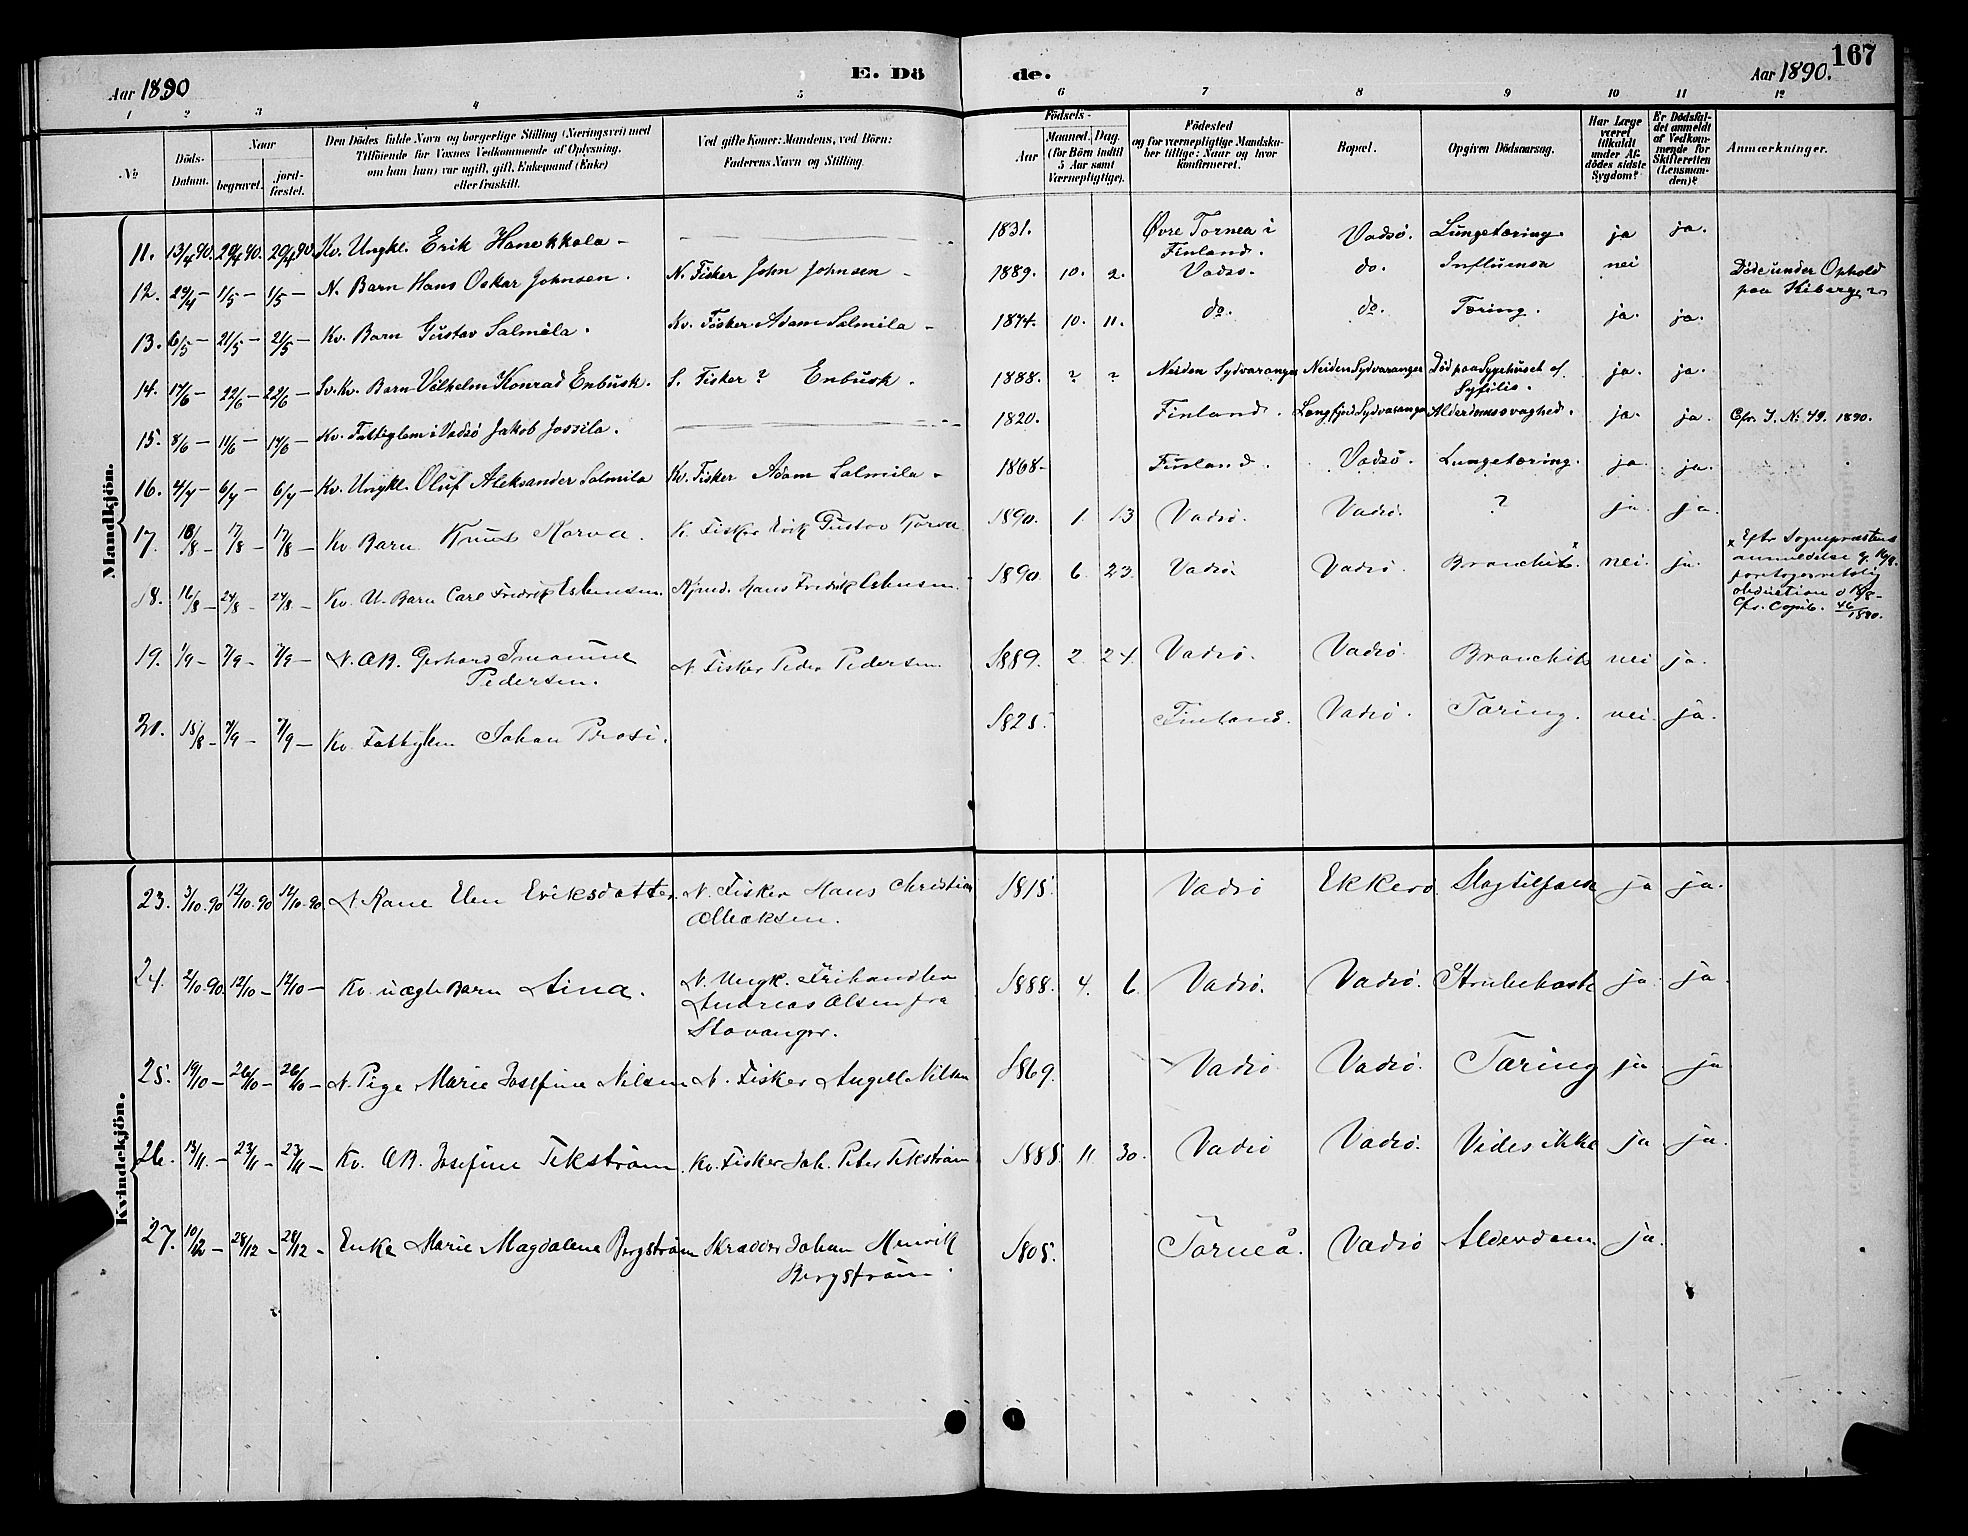 167
Aar 1890 E. Dö de. Aar 1890.
1 2 3 4 5 6 7 8 9 10 11 12
No
Döds-Datum.
Naar
begravet.
jord-fæstet.
Den Dödes fulde Navn og borgerlige Stilling (Næringsvei) med
Tilföiende for Voxnes Vedkommende af Oplysning,
om han (hun) var ugift, gift, Enkemand (Enke)
eller fraskilt.
Ved gifte Koner: Mandens, ved Börn:
Faderens Navn og Stilling.
Födsels-
Aar
Maaned.
Dag.
(for Börn indtil
5 Aar samt
Værnepligtige).
Födested
og for værnepligtige Mandska-
ber tillige: Naar og hvor
konfirmeret.
Bopæl.
Opgiven Dödsaarsag.
Har Læge
været
tilkaldt
under Af-
dödes sidste
Sygdom?
Er Dödsfal-
det anmeldt
af Vedkom-
mende for
Skifteretten
(Lensman-
den)?
Anmærkninger.
Mandkjön.
11. 13/4 90. 20/4 90. 20/4 90. Kv. Ungkl. Erik Hanekkola - 1831. Övre Tornea i Finland. Vadsö. Lungetæring. ja ja.
12. 29/4 - 1/5 - 1/5 - N. Barn Hans Oskar Johnsen. N. Fisker John Johnsen - 1889. 10. 2. Vadsö. do. Influensa nei Döde under Ophold
paa Kiberg
13. 6/5 - 21/5 - 21/5 - Kv. Barn Gustav Salmila. Kv. Fisker Adam Salmila - 1874. 10. 11. do. do. Tæring. ja. ja.
14. 17/6 - 22/6 - 22/6 - Sv. Kv. Barn Vilhelm Konrad Enbusk. S. Fisker ? Enbusk. 1888. ? ? Neiden Sydvaranger Neiden Sydvaranger Död paa Sygehuset af
Syfilis. ja. ja.
15. 8/6 - 11/6 - 17/6 - Kv. Fattiglem i Vadsö Jakob Jossila. 1820. Finland. Langfjord Sydvaranger Alderdomssvaghed. ja. ja. Cfr. J. N. 49. 1890.
16. 4/7 - 6/7 - 6/7 - Kv. Ungkl. Oluf Aleksander Salmila Kv. Fisker Adam Salmila - 1868 - Finland. Vadsö. Lungetæring. ja. ja.
17. 16/8 - 17/8 - 17/8 - Kv Barn Knut Korva. K. Fisker Erik Gustav Korva 1890. 1. 13 Vadsö. Vadsö. ? ja. ja.
18. 16/8 - 24/8 - 24/8 - Kv. U. Barn Carl Fredrik Esbensen. Hans Fredrik Esbensen. 1890 6. 23. Vadsö Vadsö. Bronchit x nei. ja. x Efter Sognepræstens
anmeldelse
obduction
Cfr. Copib. 46/1890.
19. 1/9 - 7/9 - 7/9 - N. ÆB. Gerhard Imanuel
Pedersen. N. Fisker Peder Pedersen. 1889. 2. 24. Vadsö. Vadsö. Bronchit nei ja.
20. 15/8 - 7/9 - 7/9 - Kv. Fattiglem Johan Prosi. 1825. Finland. Vadsö. Tæring. nei. ja.
Kvindekjön.
23. 3/10 90 12/10 90 12/10 90. N. Kone Elen Eriksdatter. N. Fisker Hans Christian 1815. Vadsö Ekkerö. Slagtilfælde ja ja.
24. 2/10 90. 12/10 - 12/10 - Kv. uægte Barn Aina. N. Ungk. Frihandler
Andreas Olsen fra
Stavanger. 1888. 4. 6. Vadsö. Vadsö. Strubehoste ja. ja.
25. 19/10 - 26/10 - 26/10 - N. Pige Marie Josefine Nilsen N. Fisker Angell Nilsen 1869. Vadsö Vadsö. Tæring ja ja
26. 13/11. - 23/11 - 23/11 - Kv. ÆB. Josefine Tekström. Kv. Fisker Joh. Peter Tekström 1888. 11. 30. Vadsö Vadsö. Vides ikke ja ja.
27. 10/12 - 28/12 - 28/12 - Enke Marie Magdalene Bergström Skrædder Johan Henrik
Bergström. 1805. Torneå. Vadsö Alderdom. ja.